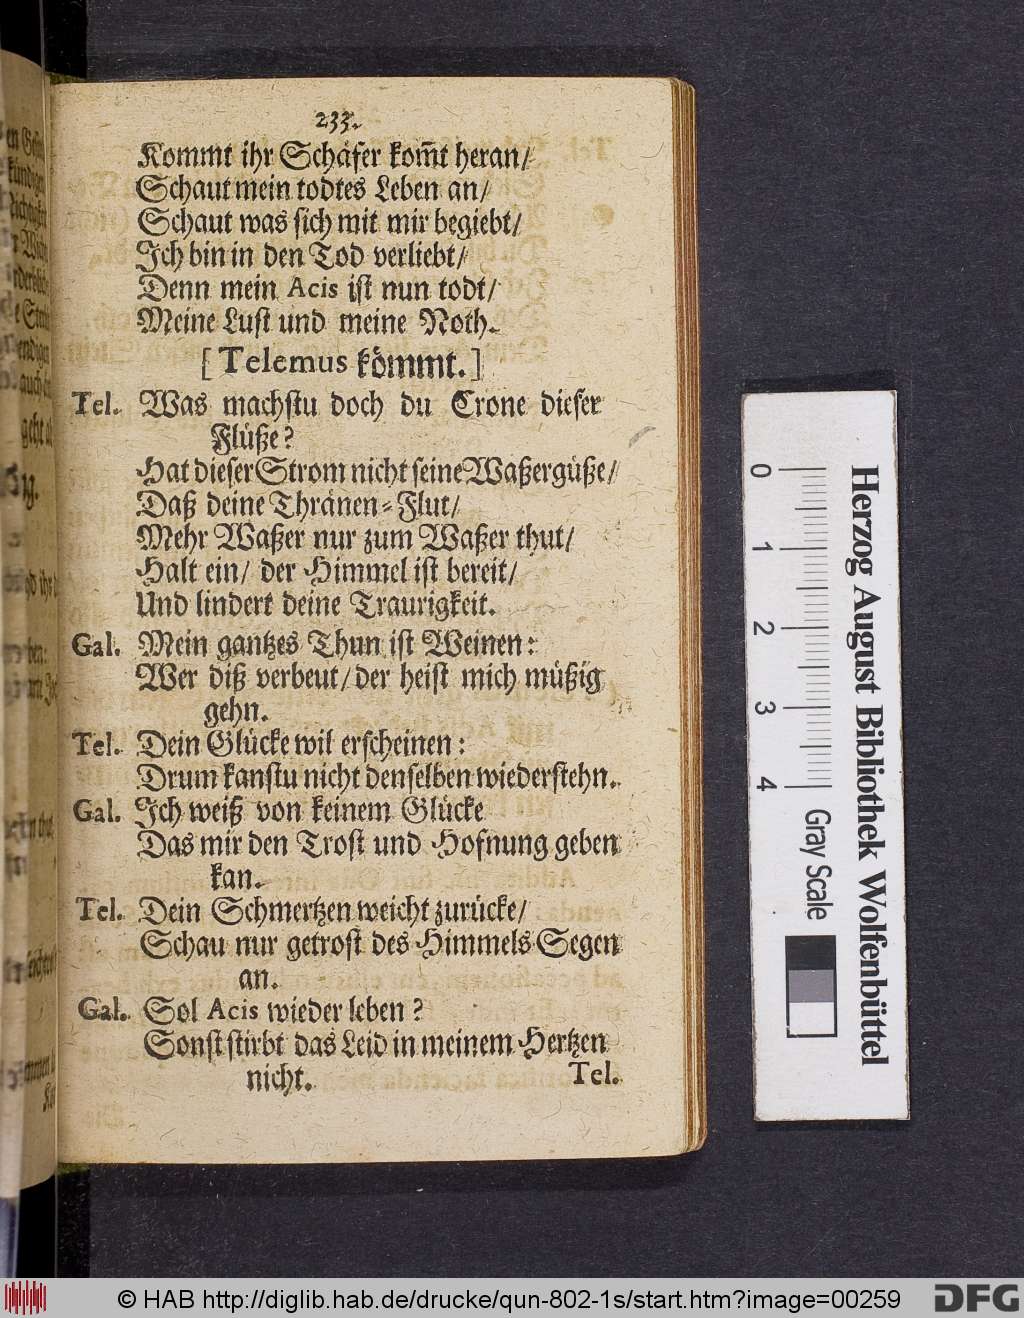 233.
Kommt ihr Schäfer kom̃t heran/
Schaut mein todtes Leben an/
Schaut was sich mit mir begiebt/
Ich bin in den Tod verliebt/
Denn mein Acis ist nun todt/
Meine Lust und meine Noth.
[Telemus kömmt.]
Tel. Was machstu doch du Crone dieser
Flüße?
Hat dieser Strom nicht seine Waßergüße/
Daß deine Thränen-Flut/
Mehr Waßer nur zum Waßer thut/
Halt ein/ der Himmel ist bereit/
Und lindert deine Traurigkeit.
Gal. Mein gantzes Thun ist Weinen:
Wer diß verbeut/ der heist mich müßig
gehn.
Tel. Dein Glücke wil erscheinen:
Drum kanstu nicht denselben wiederstehn.
Gal. Ich weiß von keinem Glücke
Das mir den Trost und Hofnung geben
kan.
Tel. Dein Schmertzen weicht zurücke/
Schau nur getrost des Himmels Segen
an.
Gal. Sol Acis wieder leben?
Sonst stirbt das Leid in meinem Hertzen
nicht. Tel.
0 1 2 3 4
Gray Scale
Herzog August Bibliothek Wolfenbüttel
© HAB http://diglib.hab.de/drucke/qun-802-1s/start.htm?image=00259
DFG